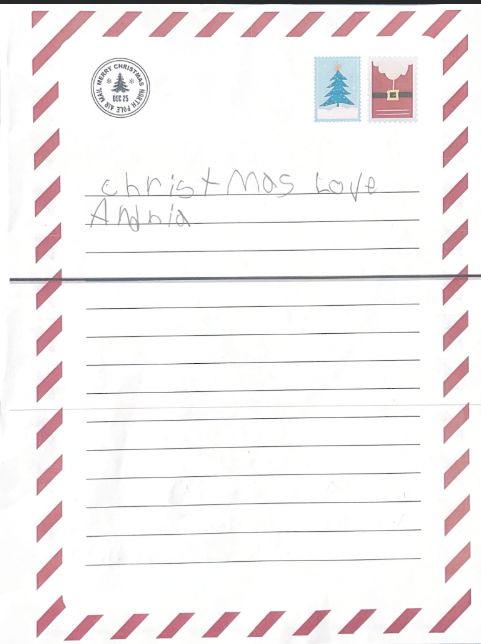 MERRY CHRISTMAS
DEC 25
NORTH POLE AIR MAIL
christmas Love